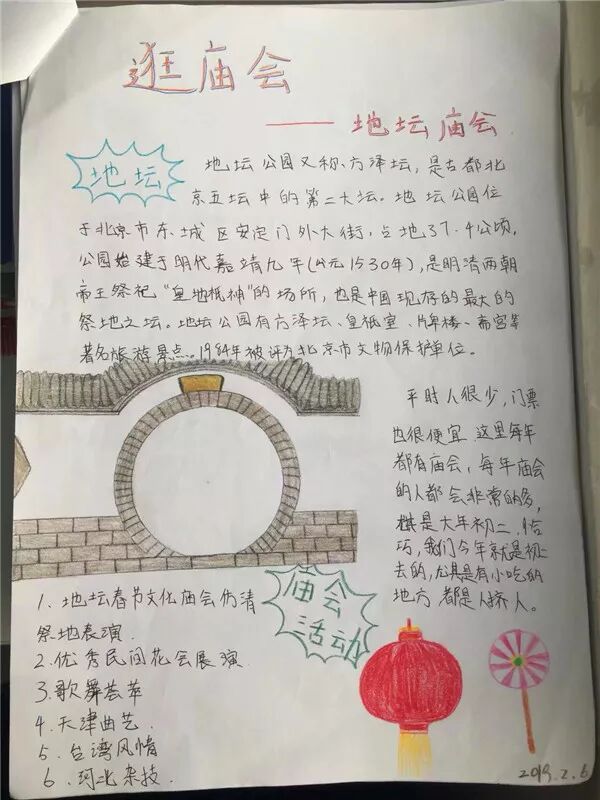 逛庙会
——地坛庙会
地坛
地坛公园又称方泽坛，是古都北
京五坛中的第二大坛。地坛公园位
于北京市东城区安定门外大街，占地37.4公顷，
公园始建于明代嘉靖九年(公元1530年)，是明清两朝
帝王祭祀“皇地祇神”的场所，也是中国现存的最大的
祭地之坛。地坛公园有方泽坛、皇祇室、牌楼、斋宫等
著名旅游景点。1984年被评为北京市文物保护单位。
平时人很少，门票
也很便宜 这里每年
都有庙会，每年庙会
的人都会非常的多，
是大年初二，恰
巧，我们今年就是初二
去的，尤其是有小吃的
地方 都是人挤人。
庙会
活动
1、地坛春节文化庙会仿清
祭地表演.
2.优秀民间花会展演
3.歌舞荟萃
4.天津曲艺.
5.台湾风情
6.河北杂技.
2019.2.6